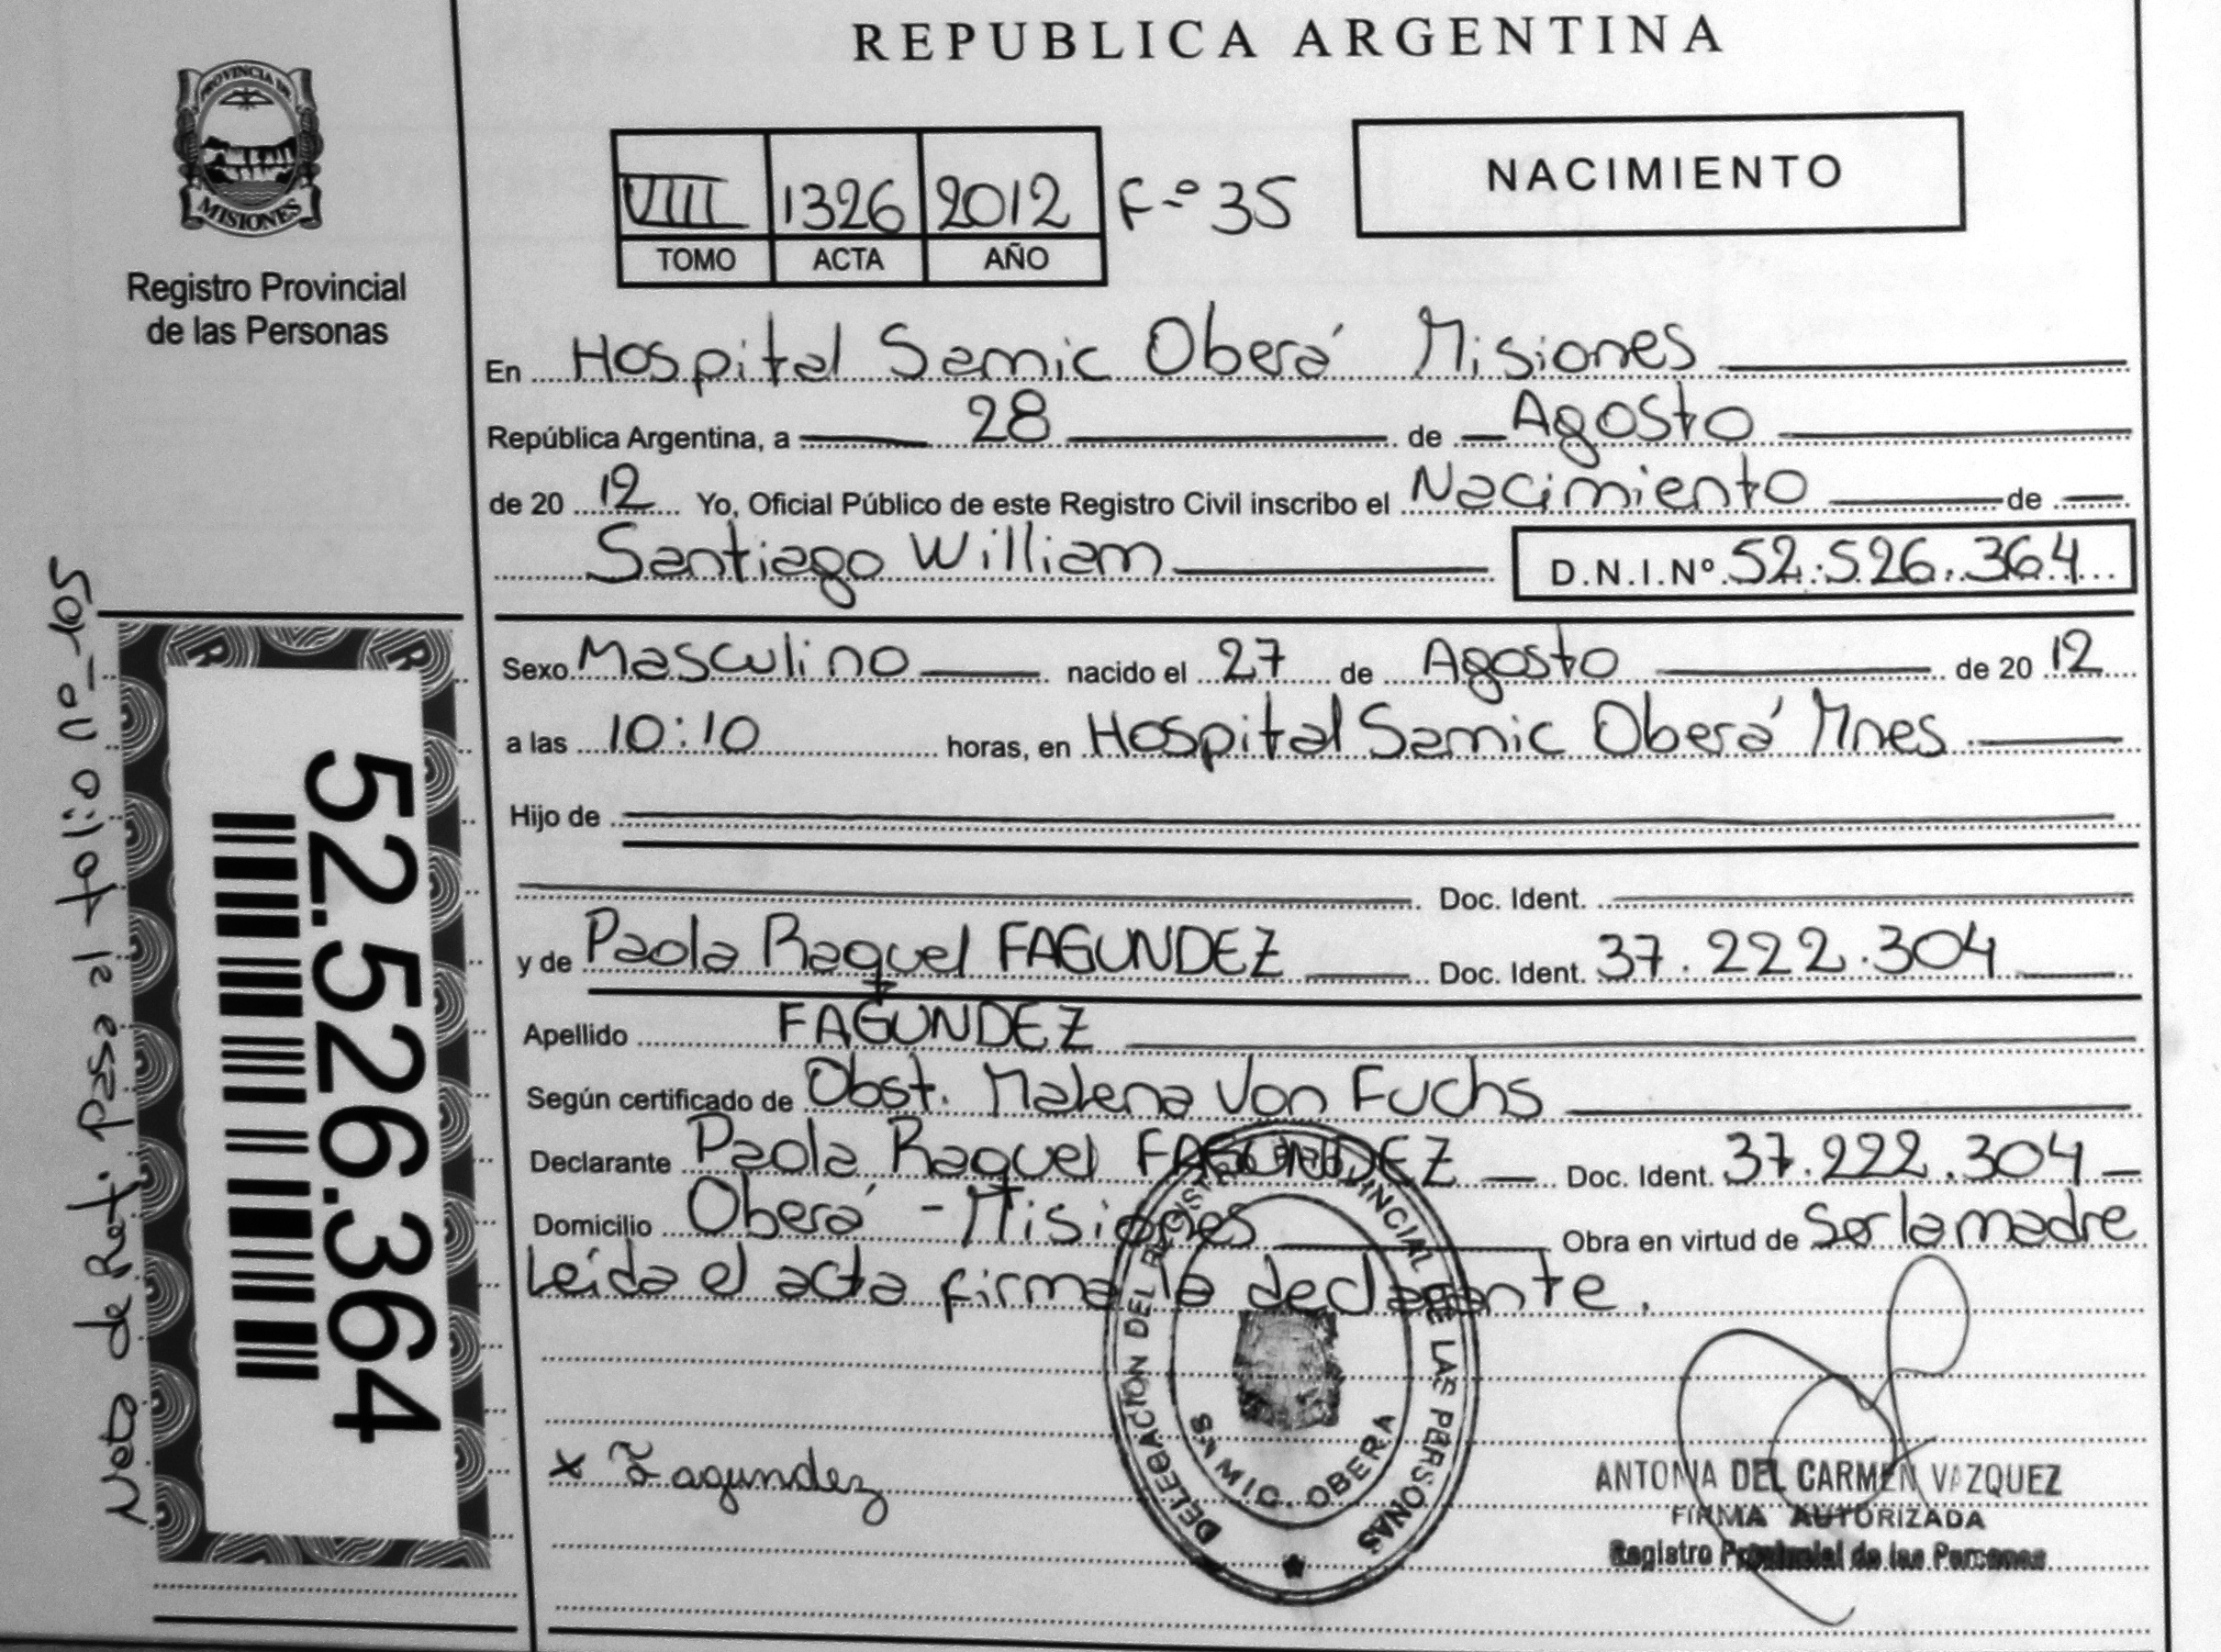 REPUBLICA ARGENTINA
PROVINCIA DE
MISIONES
Registro Provincial
de las Personas
VIII 1326 2012 F-º 35
TOMO ACTA AÑO
NACIMIENTO
En Hospital Samic Oberá Misiones
República Argentina, a 28 de Agosto
de 20 12 Yo, Oficial Público de este Registro Civil inscribo el Nacimiento de
Santiago William D.N.I.Nº 52.526.364
Sexo Masculino nacido el 27 de Agosto de 20 12
a las 10:10 horas, en Hospital Samic Oberá Mnes
Hijo de
Doc. Ident.
y de Paola Raquel FAGUNDEZ Doc. Ident. 37.222.304
Apellido FAGUNDEZ
Según certificado de Obst. Malena Von Fuchs
Declarante Paola Raquel FAGUNDEZ Doc. Ident. 37.222.304
Domicilio Oberá - Misiones Obra en virtud de Ser la madre
Leída el acta firma la declarante.
DELEGACION DEL REGISTRO PROVINCIAL DE LAS PERSONAS
SAMIC. OBERA
x Fagundez
ANTONIA DEL CARMEN VAZQUEZ
FIRMA AUTORIZADA
Registro Provincial de las Personas
52.526.364
Nota de Ref: Pasa al folio nº 105